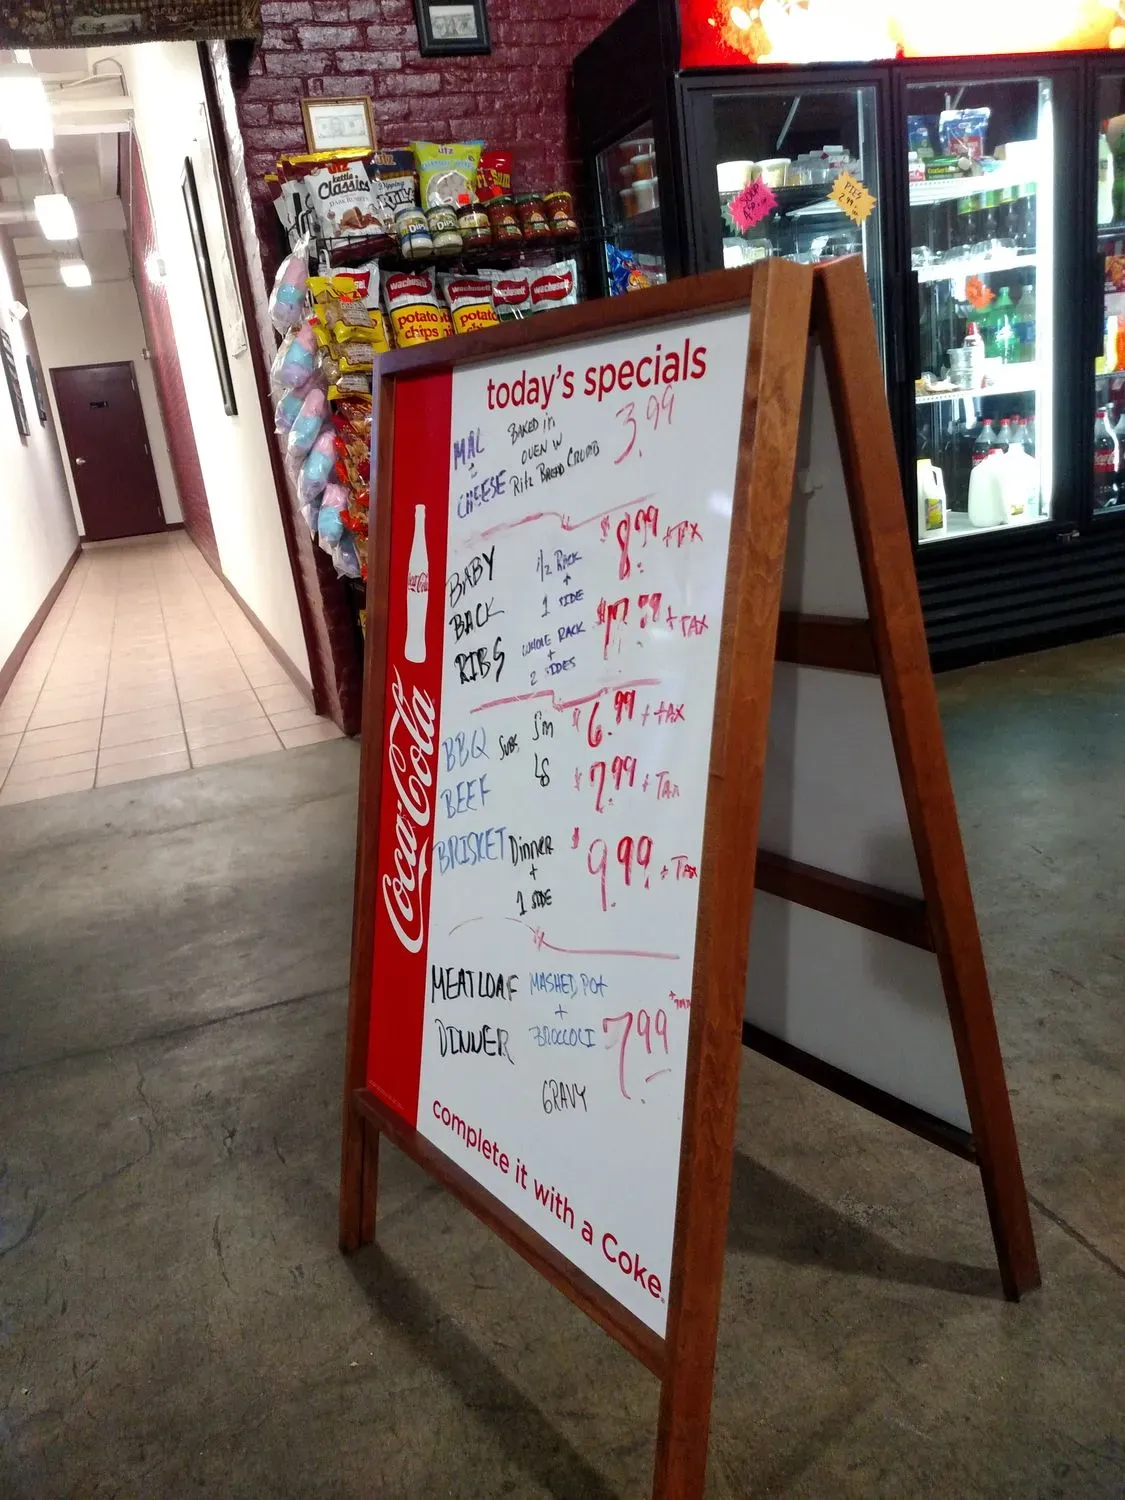 utz
kettle
Classics
DARK RUSSET
utz
DIPS
DIPS
wachusett
potato
chips
wachusett
potato
wachusett
wachusett
PIES
today's specials
MAC
BAKED in
3.99
&
OVEN W
CHEESE
Ritz BREAD CRUMB
BABY
1/2 RACK
$8.99 + TAX
BACK
+
1 SIDE
RIBS
WHOLE RACK
$17.99 + TAX
+
2 SIDES
BBQ SUBS Sm $6.99 + TAX
BEEF LG $7.99 + TAX
BRISKET Dinner $9.99 + TAX
+
1 SIDE
MEATLOAF MASHED POT
+
DINNER BROCCOLI 7.99
GRAVY
Coca-Cola
Coca-Cola
complete it with a Coke.